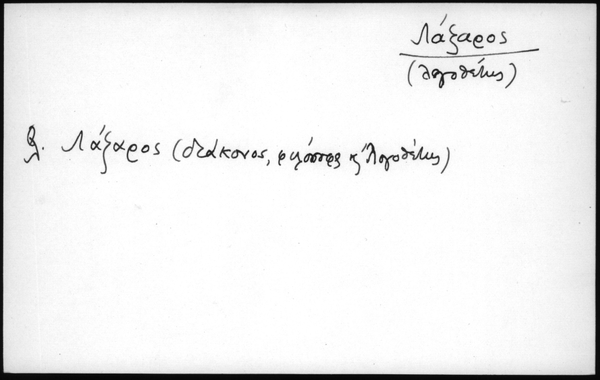 Λάζαρος
(λογοθέτης)
βλ. Λάζαρος (διάκονος, φιλόσοφος κ' λογοθέτης)